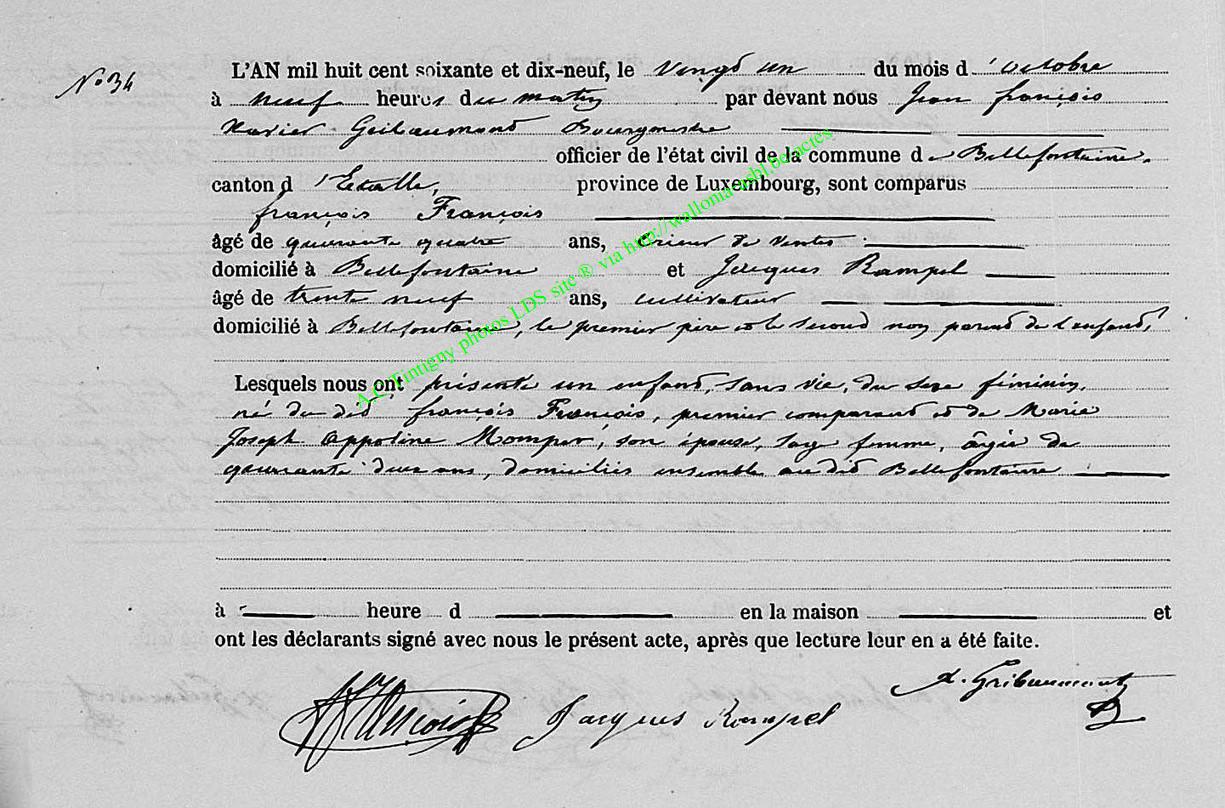 N° 34
L'AN mil huit cent soixante et dix-neuf, le vingt un du mois d'octobre
à neuf heures du matin par devant nous Jean françois
Xavier Gribaumont Bourgmestre
officier de l'état civil de la commune de Bellefontaine.
canton d'Etalle, province de Luxembourg, sont comparus
françois François
âgé de quarante quatre ans, crieur de ventes
domicilié à Bellefontaine et Jacques Rampel
âgé de trente neuf ans, cultivateur
domicilié à Bellefontaine, le premier père et le second non parent de l'enfant,
Lesquels nous ont présenté un enfant, sans vie, du sexe féminin,
né du dit françois François, premier comparant et de Marie
Joseph Appoline son épouse, sage femme, âgée de
quarante deux ans, domiciliés ensemble au dit Bellefontaine
à heure d en la maison et
ont les déclarants signé avec nous le présent acte, après que lecture leur en a été faite.
X. Gribaumont
François Jacques Rampel
A.E. Tintigny photos LDS site ® via http://wallonia-asbl.be/actes